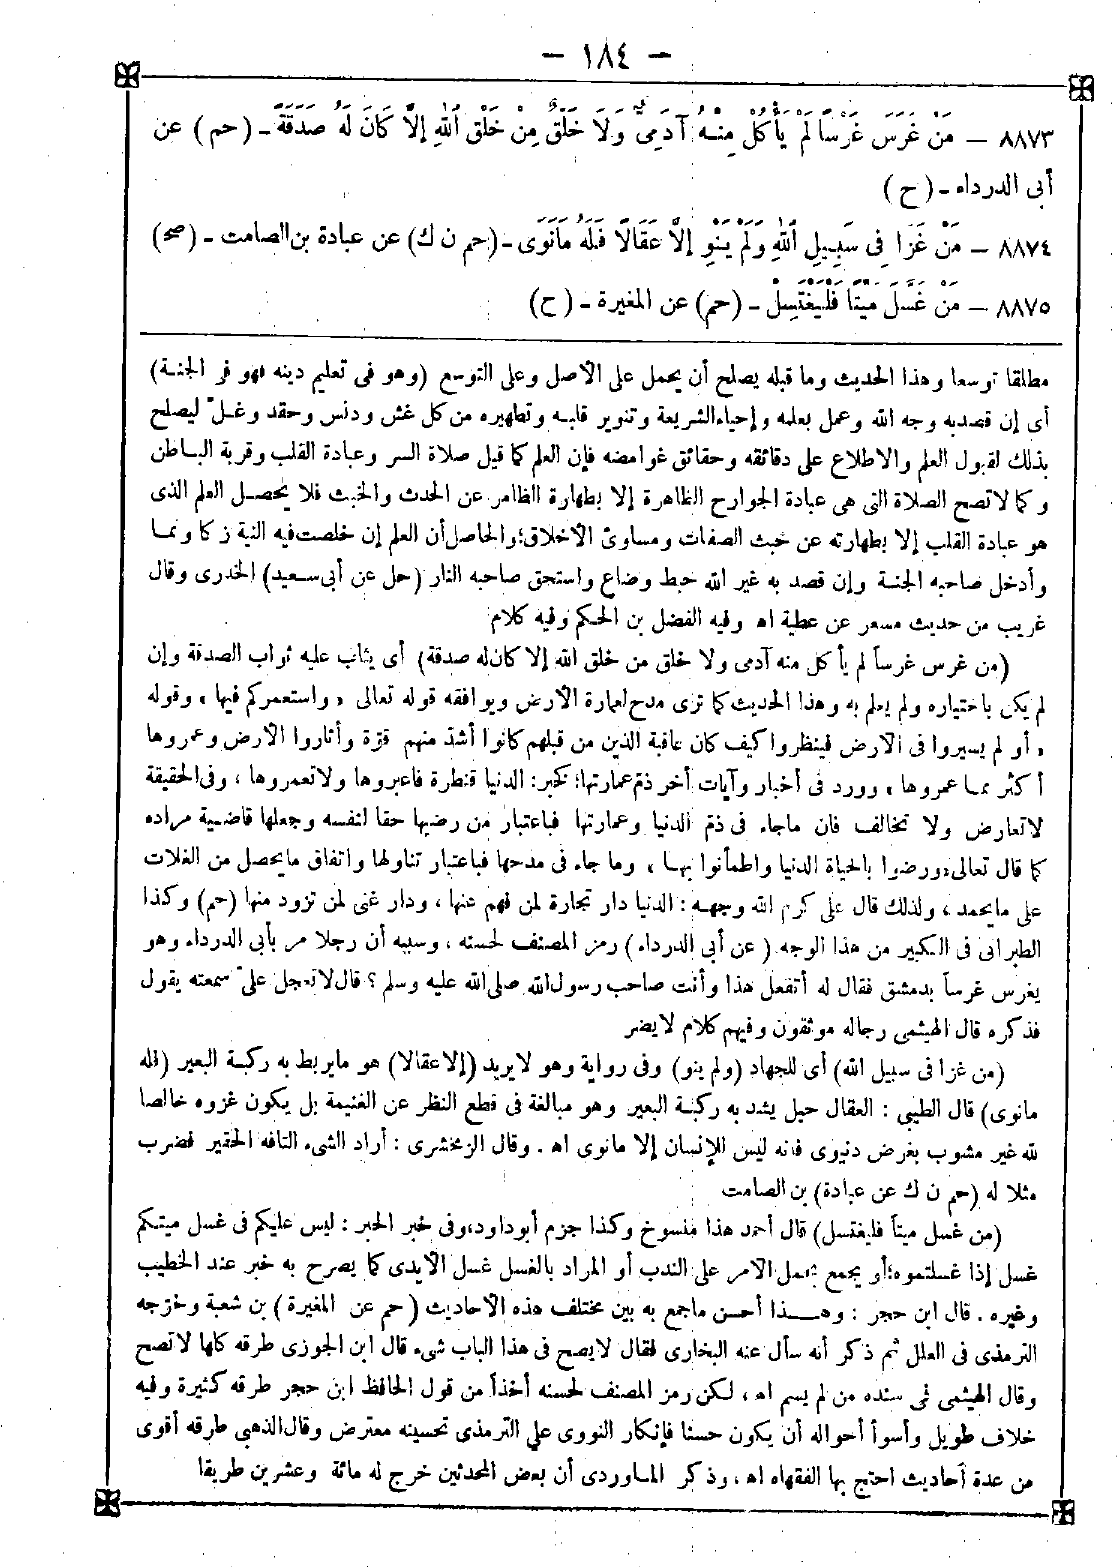 — ١٨٤ —
٨٨٧٣ — مَنْ غَرَسَ غَرْسًا لَمْ يَأْكُلْ مِنْهُ آدَمِيٌّ وَلَا خَلْقٌ مِنْ خَلْقِ اللهِ إِلَّا كَانَ لَهُ صَدَقَةً - (حم) عن
أبى الدرداء - (ح)
٨٨٧٤ — مَنْ غَزَا فِى سَبِيلِ اللهِ وَلَمْ يَنْوِ إِلَّا عِقَالًا فَلَهُ مَانَوَى - (حم ن ك) عن عبادة بن الصامت - (صح)
٨٨٧٥ — مَنْ غَسَلَ مَيْتًا فَلْيَغْتَسِلْ - (حم) عن المغيرة - (ح)
مطلقا توسعا وهذا الحديث وما قبله يصلح أن يحمل على الأصل وعلى التوسع (وهو فى تعليم دينه فهو فى الجنة)
أى إن قصد به وجه الله وعمل بعلمه وإحياء الشريعة وتنوير قلبه وتطهيره من كل غش ودنس وحقد وغلّ ليصلح
بذلك لقبول العلم والاطلاع على دقائقه وحقائق غوامضه فإن العلم كما قيل صلاة السر وعبادة القلب وقربة الباطن
وكما لا تصح الصلاة التى هى عبادة الجوارح الظاهرة إلا بطهارة الظاهر عن الحدث والخبث فلا يحصل العلم الذى
هو عبادة القلب إلا بطهارته عن خبث الصفات ومساوئ الأخلاق؛ والحاصل أن العلم إن خلصت فيه النية زكا ونما
وأدخل صاحبه الجنة وإن قصد به غير الله حبط وضاع واستحق صاحبه النار (حل عن أبى سعيد) الخدرى وقال
غريب من حديث مسعر عن عطية اه وفيه الفضل بن الحكم وفيه كلام
(من غرس غرساً لم يأكل منه آدمى ولا خلق من خلق الله إلا كان له صدقة) أى يثاب عليه ثواب الصدقة وإن
لم يكن باختياره ولم يعلم به وهذا الحديث كما ترى مدح لعمارة الأرض ويوافقه قوله تعالى «واستعمركم فيها» وقوله
«أو لم يسيروا فى الأرض فينظروا كيف كان عاقبة الذين من قبلهم كانوا أشدّ منهم قوّة وأثاروا الأرض وعمروها
أكثر مما عمروها» وورد فى أخبار وآيات أخر ذمّ عمارتها؛ كخبر: الدنيا قنطرة فاعبروها ولا تعمروها، وفى الحقيقة
لا تعارض ولا تخالف فان ماجاء فى ذمّ الدنيا وعمارتها فباعتبار من رضيها حقا لنفسه وجعلها قاضية مراده
كما قال تعالى «ورضوا بالحياة الدنيا واطمأنوا بها» وما جاء فى مدحها فباعتبار تناولها واتفاق مايحصل من الغلات
على مايحمد، ولذلك قال على كرم الله وجهه: الدنيا دار تجارة لمن فهم عنها، ودار غنى لمن تزود منها (حم) وكذا
الطبرانى فى الكبير من هذا الوجه (عن أبى الدرداء) رمز المصنف لحسنه، وسببه أن رجلا مر بأبى الدرداء وهو
يغرس غرساً بدمشق فقال له أتفعل هذا وأنت صاحب رسول الله صلى الله عليه وسلم؟ قال لا تعجل علىّ سمعته يقول
فذكره قال الهيثمى رجاله موثقون وفيهم كلام لا يضر
(من غزا فى سبيل الله) أى للجهاد (ولم ينو) وفى رواية وهو لا يريد (إلا عقالا) هو مايربط به ركبة البعير (فله
مانوى) قال الطيبى: العقال حبل يشد به ركبة البعير وهو مبالغة فى قطع النظر عن الغنيمة بل يكون غزوه خالصا
لله غير مشوب بغرض دنيوى فانه ليس للإنسان إلا مانوى اه. وقال الزمخشرى: أراد الشىء التافه الحقير فضرب
مثلا له (حم ن ك عن عبادة) بن الصامت
(من غسل ميتاً فليغتسل) قال أحمد هذا منسوخ وكذا جزم أبو داود، وفى خبر الخبر: ليس عليكم فى غسل ميتكم
غسل إذا غسلتموه؛ أو يجمع بحمل الأمر على الندب أو المراد بالغسل غسل الأيدى كما يصرح به خبر عند الخطيب
وغيره. قال ابن حجر: وهذا أحسن ماجمع به بين مختلف هذه الأحاديث (حم عن المغيرة) بن شعبة وخرّجه
الترمذى فى العلل ثم ذكر أنه سأل عنه البخارى فقال لا يصح فى هذا الباب شىء قال ابن الجوزى طرقه كلها لا تصح
وقال الهيثمى فى سنده من لم يسم اه، لكن رمز المصنف لحسنه أخذاً من قول الحافظ ابن حجر طرقه كثيرة وفيه
خلاف طويل وأسوأ أحواله أن يكون حسنا فإنكار النووى على الترمذى تحسينه معترض وقال الذهبى طرقه أقوى
من عدة أحاديث احتج بها الفقهاء اه، وذكر الماوردى أن بعض المحدثين خرج له مائة وعشرين طريقا